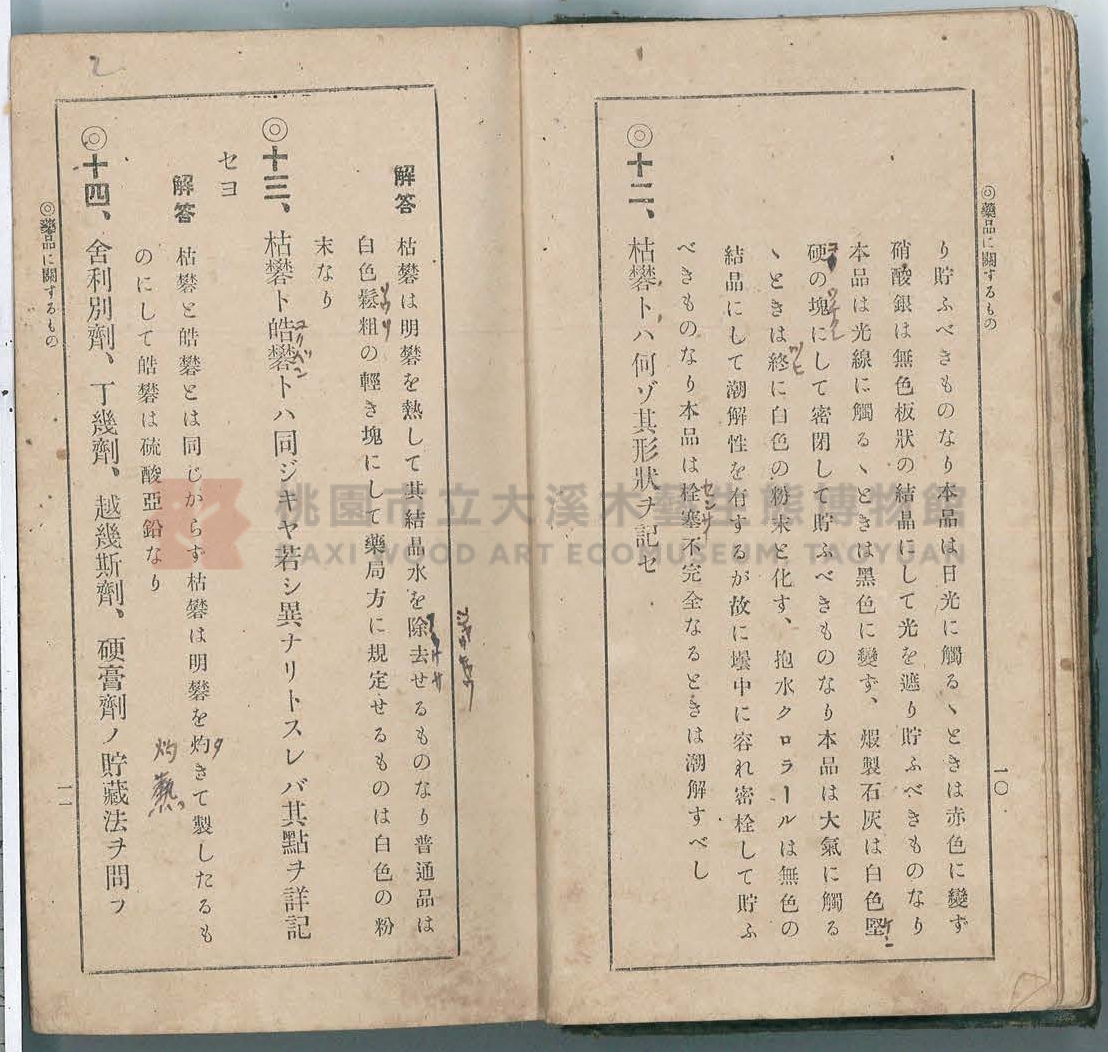 ◎藥品に關するもの
一〇
り貯ふべきものなり本品は日光に觸るヽときは赤色に變ず
硝酸銀は無色板狀の結晶にして光を遮り貯ふべきものなり
本品は光線に觸るヽときは黑色に變ず、煆製石灰は白色堅
ケン
硬の塊にして密閉して貯ふべきものなり本品は大氣に觸る
コー
ヽときは終に白色の粉末と化す、抱水クロラールは無色の
ツヒ
結晶にして潮解性を有するが故に壜中に容れ密栓して貯ふ
べきものなり本品は栓塞不完全なるときは潮解すべし
センサ
◎十二、枯礬トハ何ゾ其形狀ヲ記セ
解答 枯礬は明礬を熱して其結晶水を除去せるものなり普通品は
白色鬆粗の輕き塊にして藥局方に規定せるものは白色の粉
末なり
◎十三、枯礬ト皓礬トハ同ジキヤ若シ異ナリトスレバ其點ヲ詳記
セヨ
解答 枯礬と皓礬とは同じからず枯礬は明礬を灼きて製したるも
灼熱
のにして皓礬は硫酸亞鉛なり
◎十四、舍利別劑、丁幾劑、越幾斯劑、硬膏劑ノ貯藏法ヲ問フ
◎藥品に關するもの
一一
2
桃園市立大溪木藝生態博物館
DAXI WOOD ART ECOMUSEUM, TAOYUAN